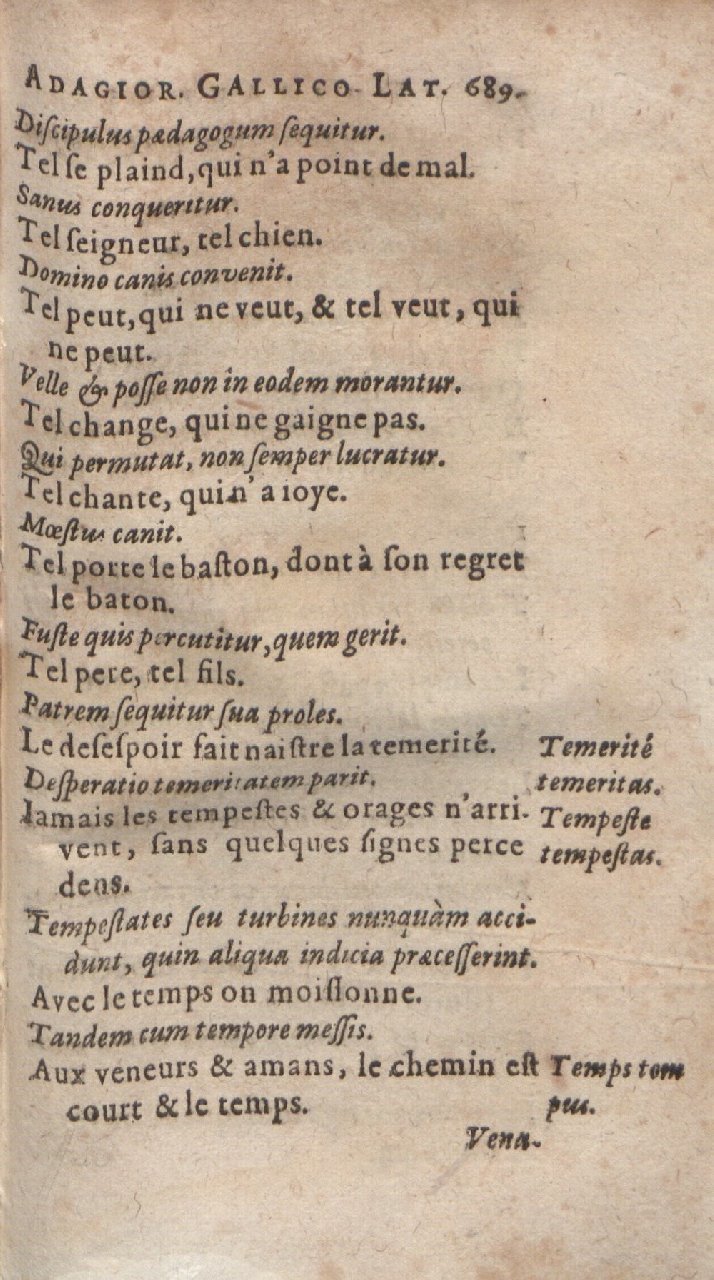 ADAGIOR. GALLICO-LAT. 689.
Diſcipulus pædagogum ſequitur.
Tel ſe plaind, qui n'a point de mal.
Sanus conqueritur.
Tel ſeigneur, tel chien.
Domino canis convenit.
Tel peut, qui ne veut, & tel veut, qui
ne peut.
Velle & poſſe non in eodem morantur.
Tel change, qui ne gaigne pas.
Qui permutat, non ſemper lucratur.
Tel chante, qui n'a ioye.
Mœſtus canit.
Tel porte le baſton, dont à ſon regret
le baton.
Fuſte quis percutitur, quem gerit.
Tel pere, tel fils.
Patrem ſequitur ſua proles.
Le deſeſpoir fait naiſtre la temerité. Temerité
Deſperatio temeritatem parit. temeritas.
Iamais les tempeſtes & orages n'arri- Tempeſte
vent, ſans quelques ſignes perce tempeſtas.
dens.
Tempeſtates ſeu turbines nunquàm acci-
dunt, quin aliqua indicia præceſſerint.
Avec le temps on moiſſonne.
Tandem cum tempore meſſis.
Aux veneurs & amans, le chemin eſt Temps tem
court & le temps. pus.
Vena-